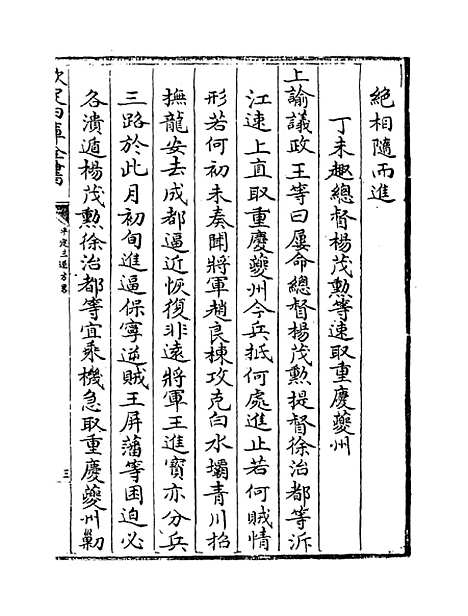 絶相隨而進
丁未趣總督楊茂勲等速取重慶夔州
上諭議政王等曰屢命總督楊茂勲提督徐治都等泝
江速上直取重慶夔州今兵抵何處進止若何賊情
形若何初未奏聞將軍趙良棟攻克白水壩青川招
撫龍安去成都逼近恢復非遠將軍王進寳亦分兵
三路於此月初旬進逼保寧逆賊王屏藩等困迫必
各潰遁楊茂勲徐治都等宜乘機急取重慶夔州勦
欽定四庫全書
平定三逆方畧
三